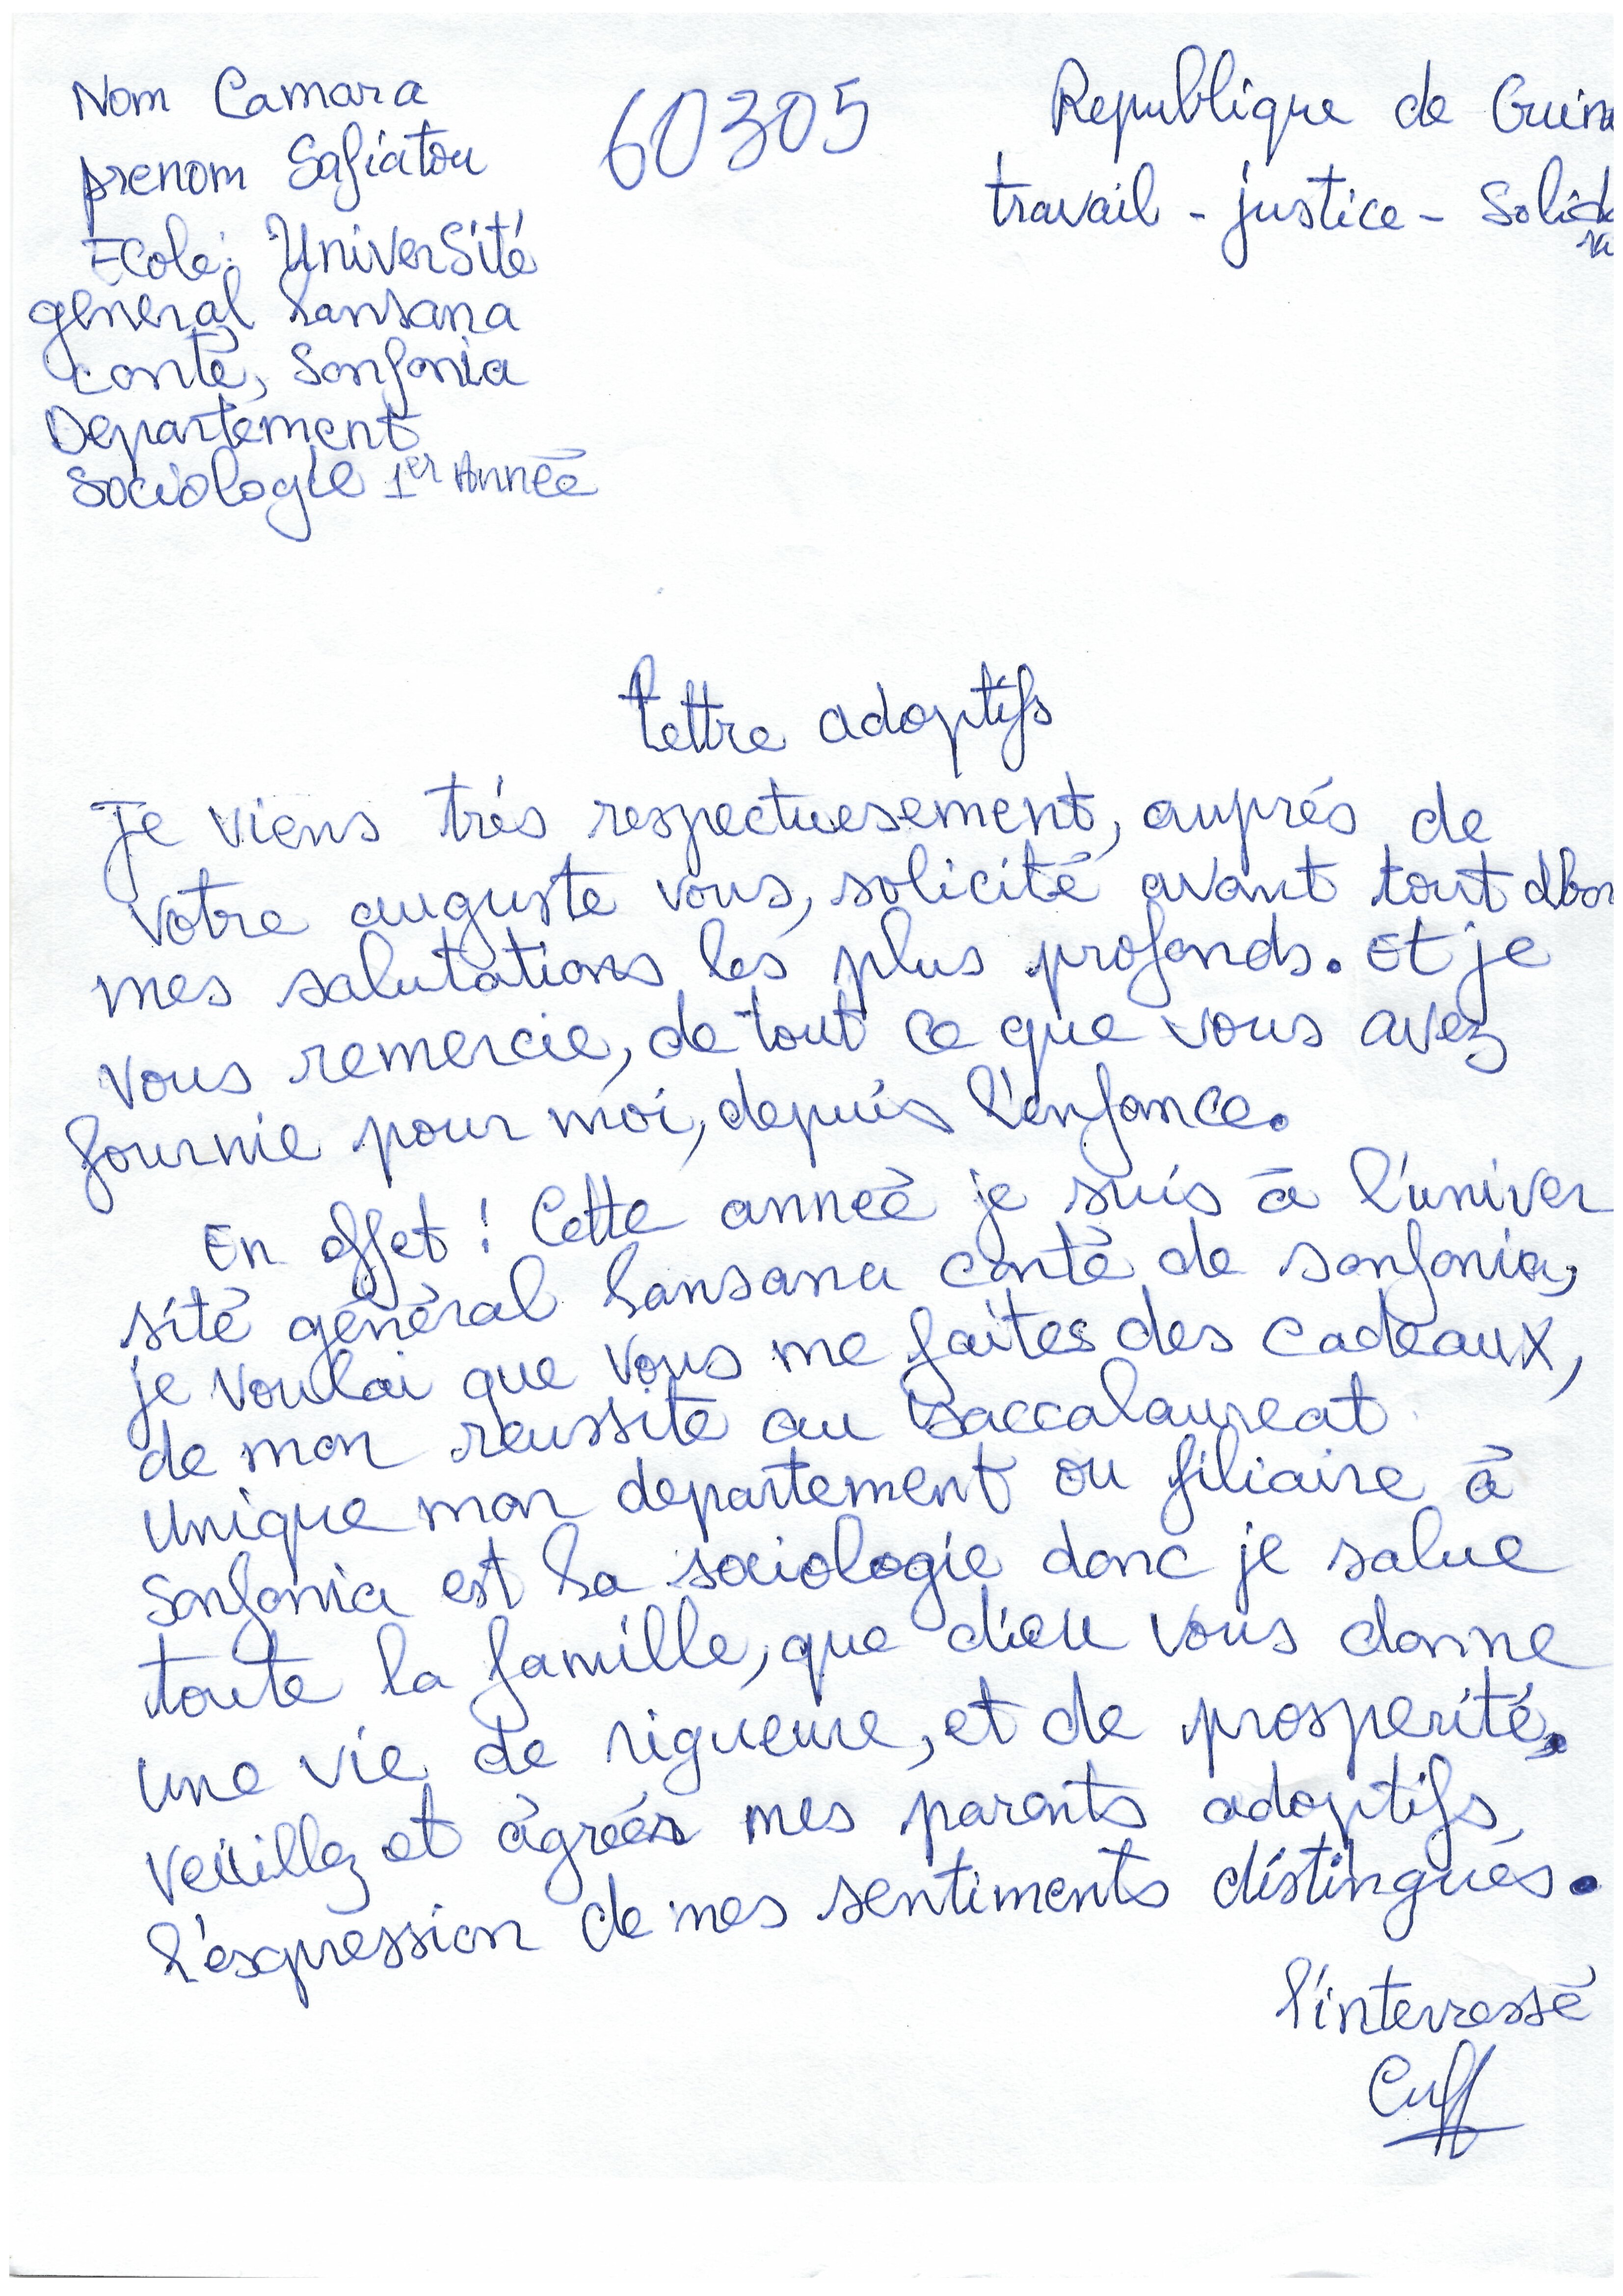 Nom Camara
prenom Safiatou
Ecole: Université
général Lansana
conté, Sonfonia
Departement
Sociologie 1er Année
60305
Republique de Guin
travail - justice - Solida
lettre adoptifs
Je viens trés respectuesement, auprés de
votre auguste vous, solicité avant tout dbor
mes salutations les plus profonds. Et je
vous remercie, de tout ce que vous avez
fournie pour moi, depuis l'enfance.
En effet ! Cette anneé je suis à l'univer
sité général Lansana conté de sonfonia,
je voulai que vous me faites des cadeaux,
de mon reussite au Baccalaureat
unique mon departement ou filiaire à
Sonfonia est la sociologie donc je salue
toute la famille, que dieu vous donne
une vie de rigueure, et de prosperité.
Veuillez et àgréer mes parents adoptifs,
l'expression de mes sentiments distingués.
l'interressé